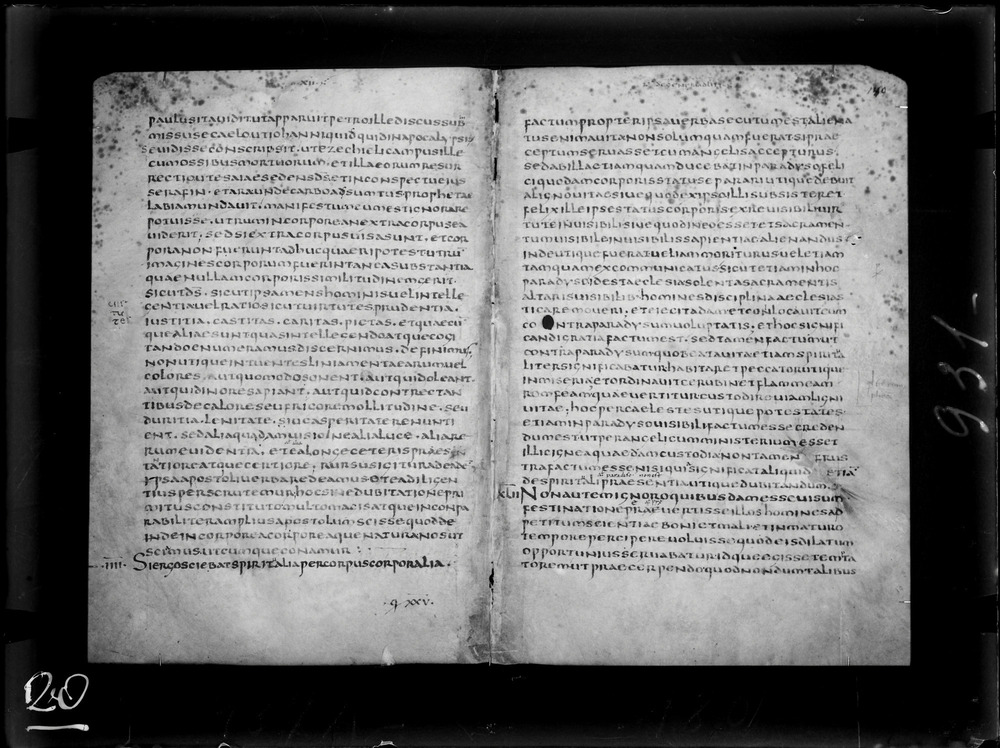 ·XII·
PAULUSITAUIDITUTAPPARUITPETROILLEDISCUSSUB
MISSUSECAELOUTIOHANNIQUIDQUIDINAPOCALYPSI
SEUIDISSECONSCRIPSIT. UTEZECHIELICAMPUSILLE
CUMOSSIBUSMORTUORUM. ETILLAEORUMRESUR
RECTIOUTESAIAESEDENSDSETINCONSPECTUEIUS
SERAFIN. ETARAUNDECARBOADSUMTUSPROPHETAE
LABIAMUNDAUIT. MANIFESTUMEUMESTIGNORARE
POTUISSE. UTRUMINCORPOREANEXTRACORPUSEA
UIDERIT; SEDSIEXTRACORPUSUISASUNT. ETCOR
PORANONFUERUNTADHUCQUAERIPOTESTUTRU
IMAGINESCORPORUMFUERINTANEASUBSTANTIA
QUAENULLAMCORPORISSIMILITUDINEMGERIT.
SICUTDS. SICUTIPSAMENSHOMINISUELINTELLE
GENTIAUELRATIOSICUTUIRTUTESPRUDENTIA.
IUSTITIA. CASTITAS. CARITAS. PIETAS. ETQUAECU
QUEALIAESUNTQUASINTELLEGENDOATQUECOGI
TANDOENUMERAMUSDISCERNIMUS. DEFINIMUS.
NONUTIQUEINTUENTESLINIAMENTAEARUMUEL
COLORES. AUTQUOMODOSONENT. AUTQUIDOLEANT.
AUTQUIDINORESAPIANT. AUTQUIDCONTRECTAN
TIBUSDECALORESEUFRIGOREMOLLITUDINE. SEU
DURITIA. LENITATE. SIUEASPERITATERENUNTI
ENT. SEDALIAQUADAMUISIONEALIALUCE. ALIARE
RUMEUIDENTIA. ETEALONGECETERISPRAESTAN
TIOREATQUECERTIORE; RURSUSIGITURADEADE
IPSAAPOSTOLIUERBAREDEAMUSQTEADILIGEN
TIUSPERSCRUTEMURHOCSINEDUBITATIONEPRI
MITUSCONSTITUTOMULTOMAGISATQUEINCONPA
RABILITERAMPLIUSAPOSTOLUMSCISSEQUODDE
INDEINCORPOREACORPOREAQUENATURANOSUT
SCIAMUSUTCUMQUECONAMUR
·IIII· SIERGOSCIEBATSPIRITALIAPERCORPUSCORPORALIA.
·q XXV·
140
FACTUMPROPTERIPSAUERBASECUTUMESTALIENA
TUSENIMAUITANONSOLUMQUAMFUERATSIPRAE
CEPTUMSERUASSETCUMANGELISACCEPTURUS.
SEDABILLAETIAMQUAMDUCEBATINPARADYSOFELI
CIQUODAMCORPORISSTATUSEPARARIUTIQUEDEBUIT
ALIGNOUITAESIUEQUODEXIPSOILLISUBSISTERET
FELIXILLEIPSESTATUSCORPORISEXREUISIBILIUIR
TUTEINUISIBILISIUEQUODINEOESSETETSACRAMEN
TUMUISIBILEINUISIBILISSAPIENTIAEALIENANDUS
INDEUTIQUEFUERATUELIAMMORITURUSUELETIAM
TAMQUAMEXCOMMUNICATUSSICUTETIAMINHOC
PARADYSOIDESTAECLESIASOLENTASACRAMENTIS
ALTARISUISIBILIB·HOMINESDISCIPLINAAECLESIAS
TICAREMOUERI. ETEIECITADAMETCONLOCAUITEUM
CONTRAPARADYSUMUOLUPTATIS. ETHOCSIGNIFI
CANDIGRATIAFACTUMEST. SEDTAMENFACTUMUT
CONTRAPARADYSUMQUOBEATAUITAETIAMSPIRITA
LITERSIGNIFICABATURHABITARETPECCATORUTIQUE
INMISERIAETORDINAUITCERUBINETFLAMMEAM
ROMFEAMQUAEUERTITURCUSTODIREUIAMLIGNI
UITAE; HOCPERCAELESTESUTIQUEPOTESTATES
ETIAMINPARADYSOUISIBILIFACTUMESSECREDEN
DUMESTUTPERANGELICUMMINISTERIUMESSET
ILLICIGNEAQUAEDAMCUSTODIANONTAMENFRUS
TRAFACTUMESSENISIQUIASIGNIFICATALIQUID ETIA
DESPIRITALIPRAESENTIAUTIQUEDUBITANDUM.
XLII NONAUTEMIGNOROQUIBUSDAMESSEUISUM
FESTINATIONEPRAEUERTISSEILLOSHOMINESAD
PETITUMSCIENTIAEBONIETMALIETINMATURO
TEMPOREPERCIPEREUOLUISSEQUODEISDILATUM
OPPORTUNIUSSERUABATURIDQUEEGISSETEMTA
TOREMUTPRAECERPENDOQUODNONDUMTALIBUS
20
931-